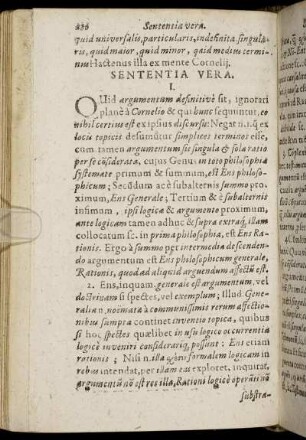 286 Sententia vera.
quid universalis, particularis, indefinita singula-
ris, quid maior, quid minor, quid medius termi-
nus Hactenus illa ex mente Cornelij.
SENTENTIA VERA.
I.
QUid argumentum definitivè sit, ignorari
planè à Cornelio & qui hunc sequuntur, eo
nihil certius est ex ipsius discursu: Negat n. ea q̃ ex
locis topicis desumũtur simplices terminos esse,
cum tamen argumentum sit singula & sola ratio
per se cõsiderata, cujus Genus in toto philosophiæ
systemate primum & summum, est Ens philoso-
phicum; Secũdum ac è subalternis summo pro-
ximum, Ens Generale; Tertium & è subalternis
infimum, ipsi logicæ & argumento proximum,
ante logicam tamen adhuc & supra extraq́; illam
collocatum sc. in prima philosophia, est Ens Ra-
tionis. Ergo à summo per intermedia descenden-
do argumentum est Ens philosophicum generale,
Rationis, quod ad aliquid arguendum affectũ est.
2. Ens, inquam, generale est argumentum, vel
doctrinam si spectes, vel exemplum; illud Gene-
ralia n. nominata à communissimis rerum affectio-
nibus supra continet inventio topica, quibus
si hoc spectes quælibet in usu logico occurrentia
logicè inveniri considerariq́; possunt: Eni etiam
rationis; Nisi n. illa quis formalem logicam in
rebus intendat, per illam ea exploret, inquirat,
argumentũ nõ est res illa, Rationi logicè operãti nõ
substra-